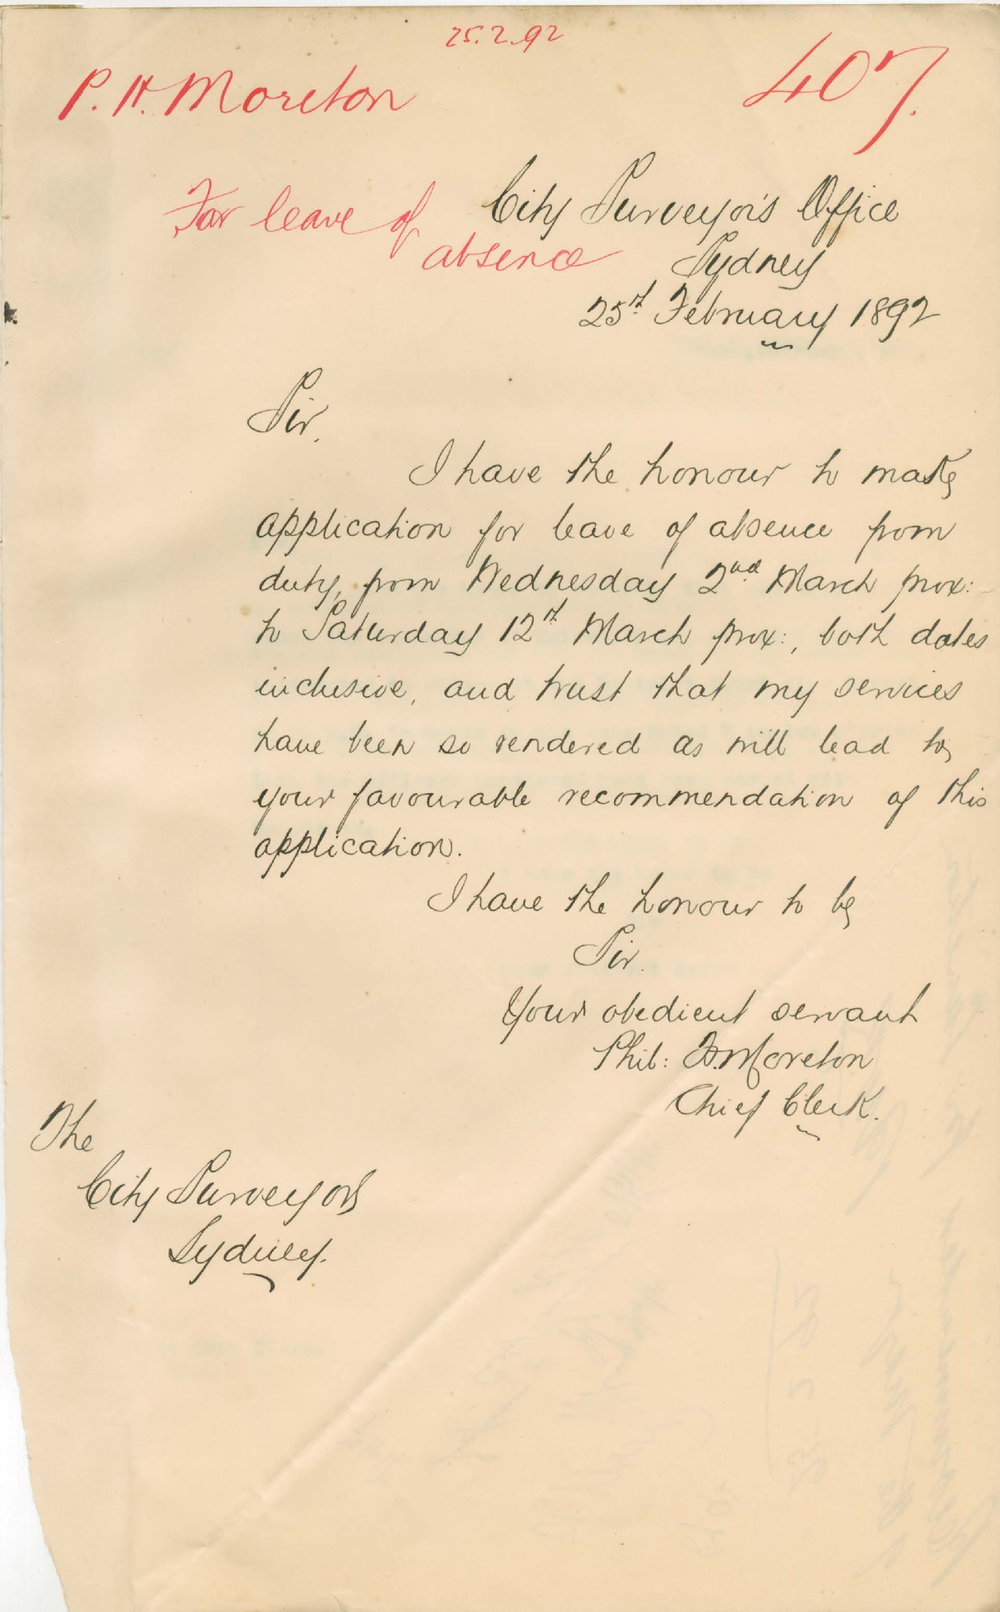 25.2.92
P. H. Moreton
407.
For leave of
absence
City Surveyor's Office
Sydney
25th February 1892
Sir,
I have the honour to make
application for leave of absence from
duty, from Wednesday 2nd March prox:
to Saturday 12th March prox:, both dates
inclusive, and trust that my services
have been so rendered as will lead to
your favourable recommendation of this
application.
I have the honour to be
Sir.
Your obedient servant
Phil: H. Moreton
Chief Clerk.
The
City Surveyor
Sydney.